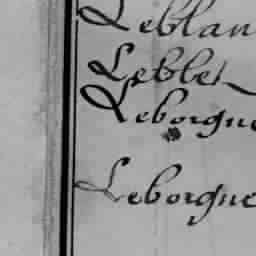 Leblan
Leblet
Leborgne
Leborgne